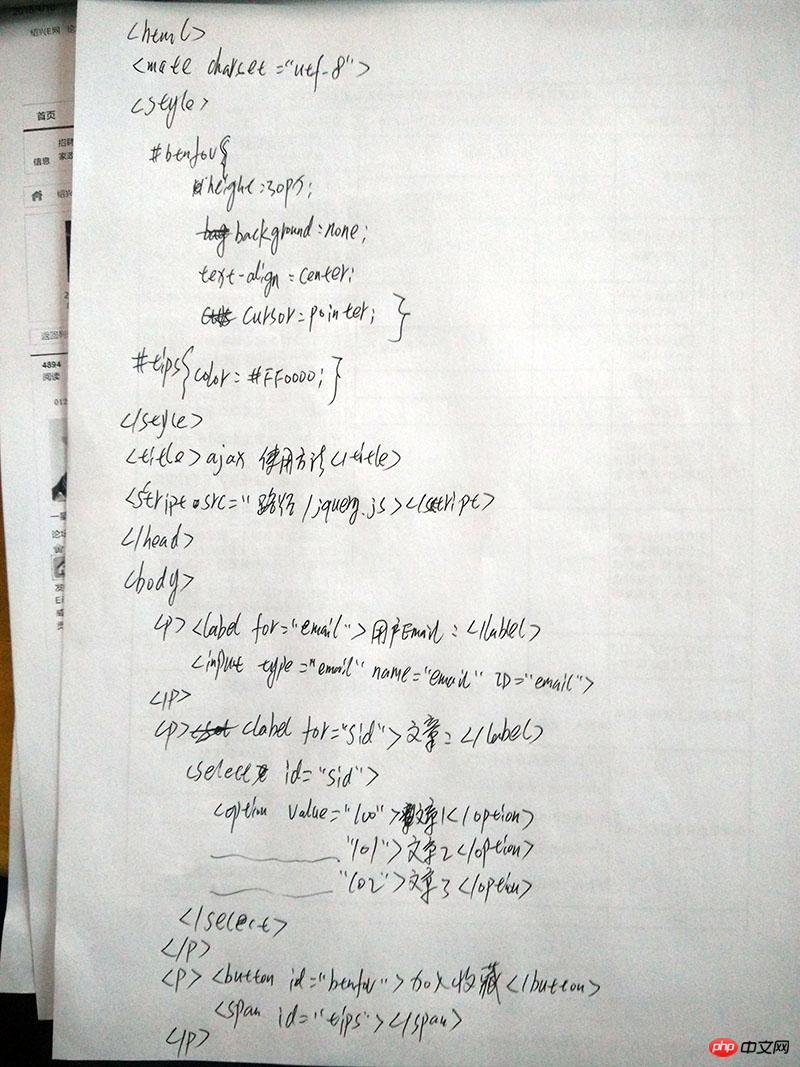 <html>
<mate charset="utf-8">
<style>
#btnfov{
height:30px;
background:none;
text-align:center;
cursor:pointer; }
#tips{color:#FF0000;}
</style>
<title>ajax 使用方法<title>
<stript src="路径/jquery.js></stript>
</head>
<body>
<p><label for="email">用户Email:</label>
<input type="email" name="email" ID="email">
</p>
<p><label for="sid">文章:</label>
<select id="sid">
<option value="100">文章1</option>
"101">文章2</option>
"102">文章3</option>
</select>
</p>
<p><button id="btnfov">加入收藏</button>
<span id="tips"></span>
</p>
首页
信息
4894
阅读
php 中文网